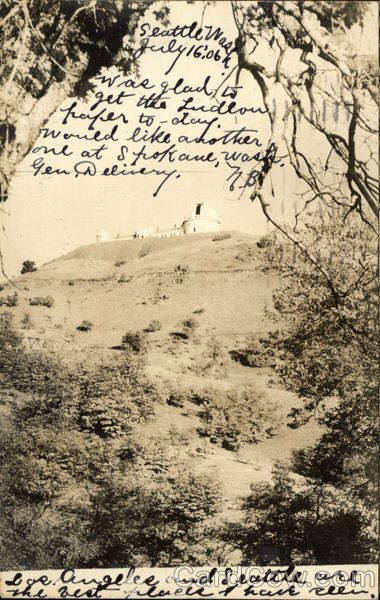 Seattle, Wash.
July 16, 06
Was glad to
get the Ludlow
paper to-day.
Would like another
one at Spokane, Wash.
Gen. Delivery.
CardCow.com
Los Angeles and Seattle are
the best places I have seen.